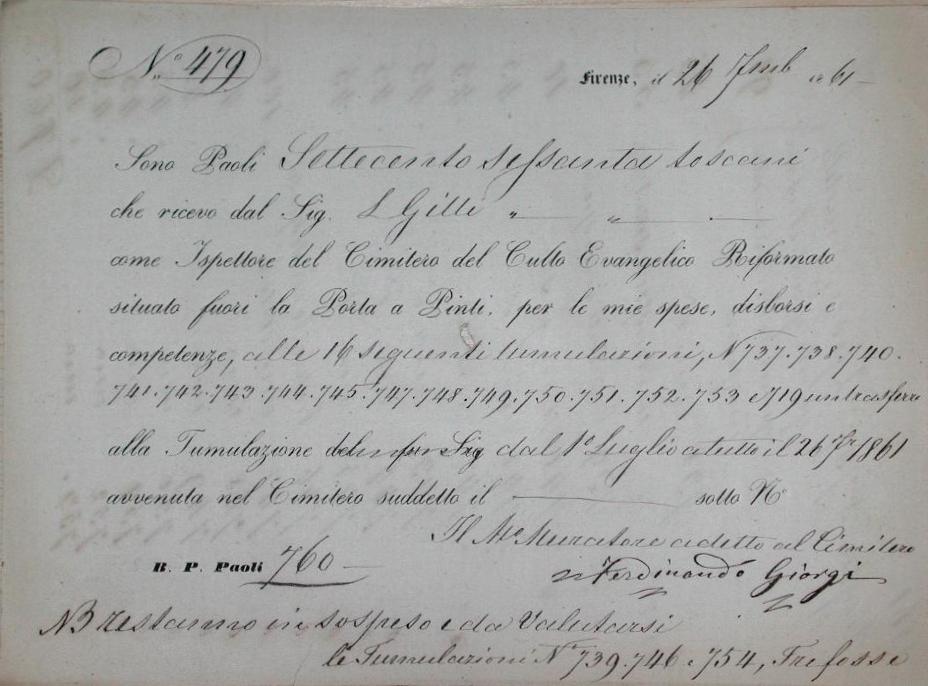 N.° 479
Firenze, il 26 7mb 1861
Sono Paoli Settecento sessanta toscani
che ricevo dal Sig. L Gilli " "
come Ispettore del Cimitero del Culto Evangelico Riformato
situato fuori la Porta a Pinti, per le mie spese, disborsi e
competenze, alle 16 seguenti tumulazioni, N 737.738.740.
741.742.743.744.745.747.748.749.750.751.752.753 e 719 un trasferi
alla Tumulazione del fu Sig dal 1° Luglio a tutto il 26 7br 1861
avvenuta nel Cimitero suddetto il sotto N°
Il Mo Muratore adetto al Cimitero
B. P. Paoli 760
Ferdinando Giorgi
NB restanno in sospeso e da Valutarsi
le Tumulazioni N° 739.746 e 754, Tre fosse